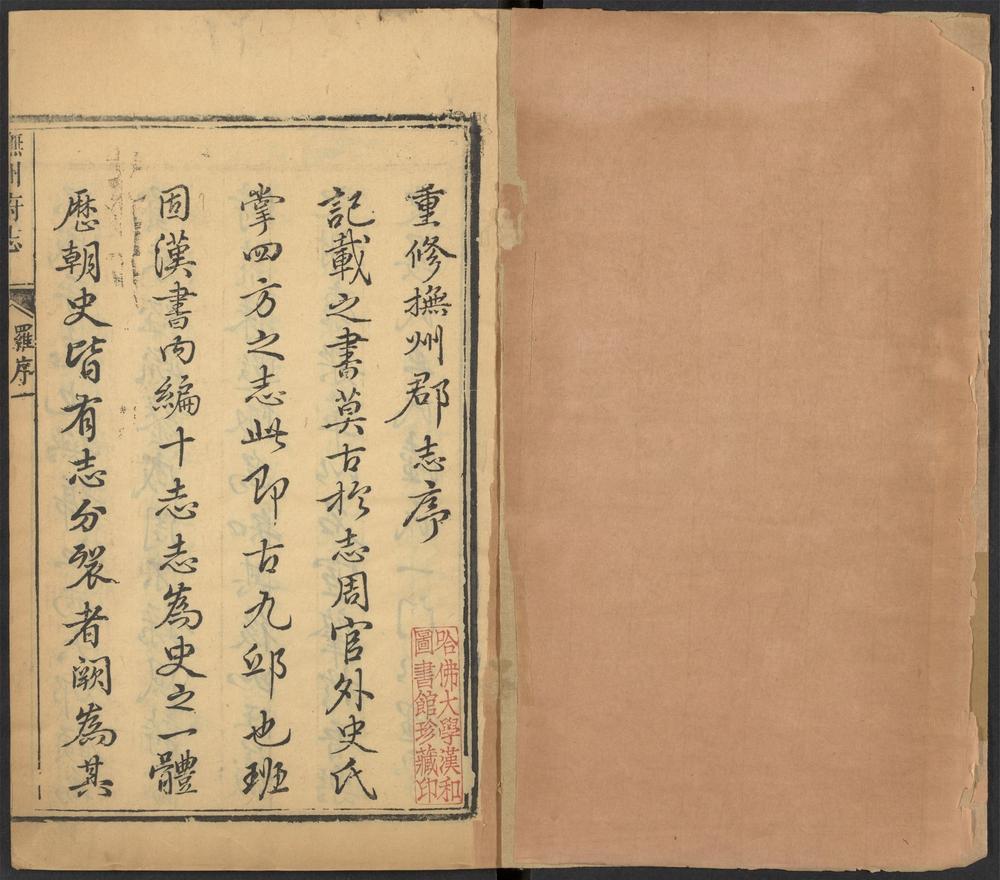 重修撫州郡志序
記載之書莫古於志周官外史氏
掌四方之志此即古九邱也班
固漢書內編十志志為史之一體
歷朝史皆有志分裂者闕為其
哈佛大學漢和
圖書館珍藏印
撫州府志
羅序
一